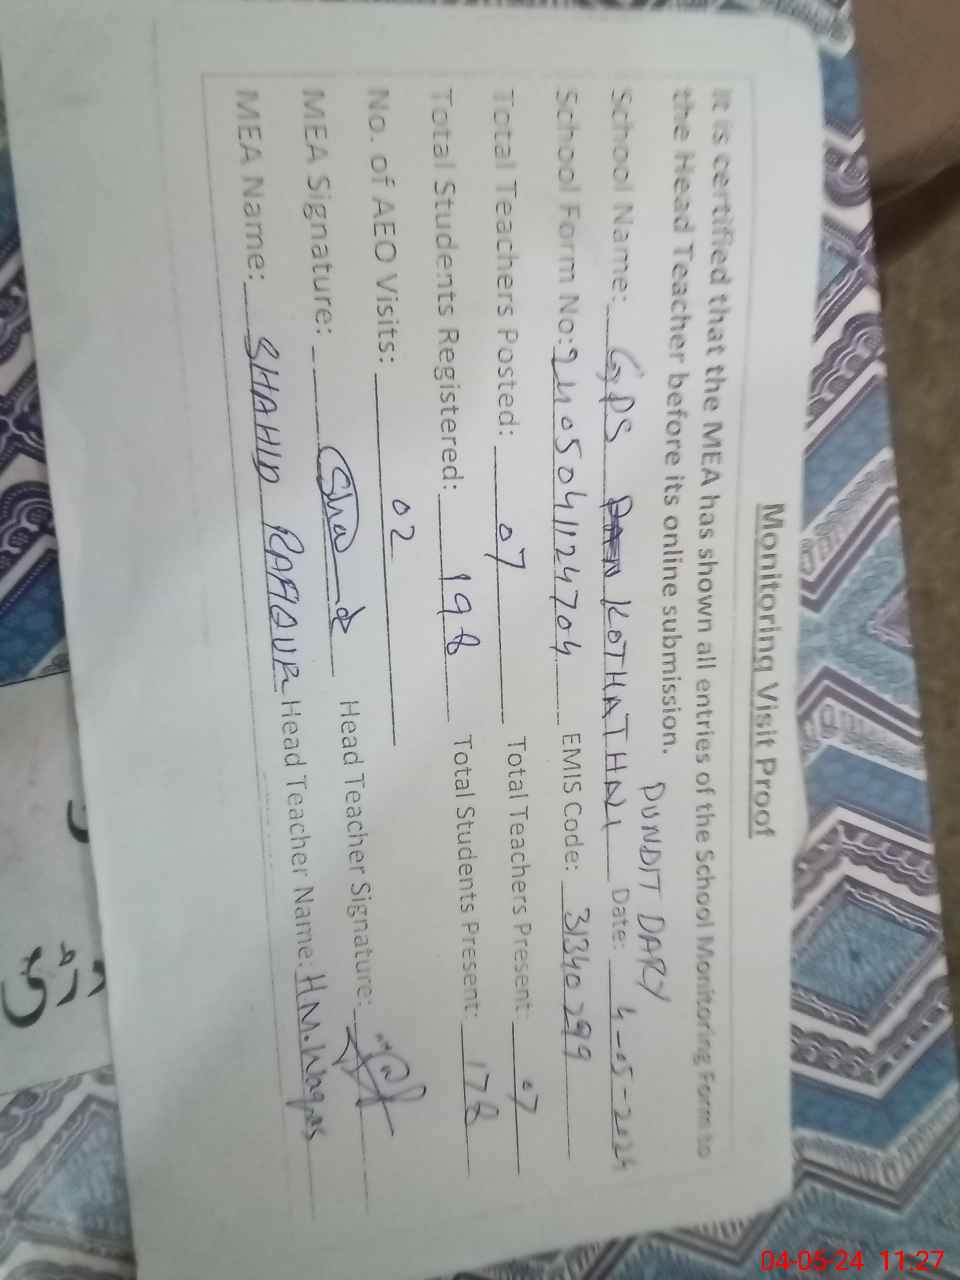 Monitoring Visit Proof
It is certified that the MEA has shown all entries of the School Monitoring Form to
the Head Teacher before its online submission.
PUNDIT DARY
School Name: GPS KOTHATHNI Date: 4-05-2024
School Form No: 2405041124704 EMIS Code: 31340299
Total Teachers Posted: 07 Total Teachers Present: 07
Total Students Registered: 198 Total Students Present: 178
No. of AEO Visits: 02
MEA Signature: Head Teacher Signature:
MEA Name: SHAHID RAFIQUE Head Teacher Name: H.M. Waqas
04-05-24 11:27